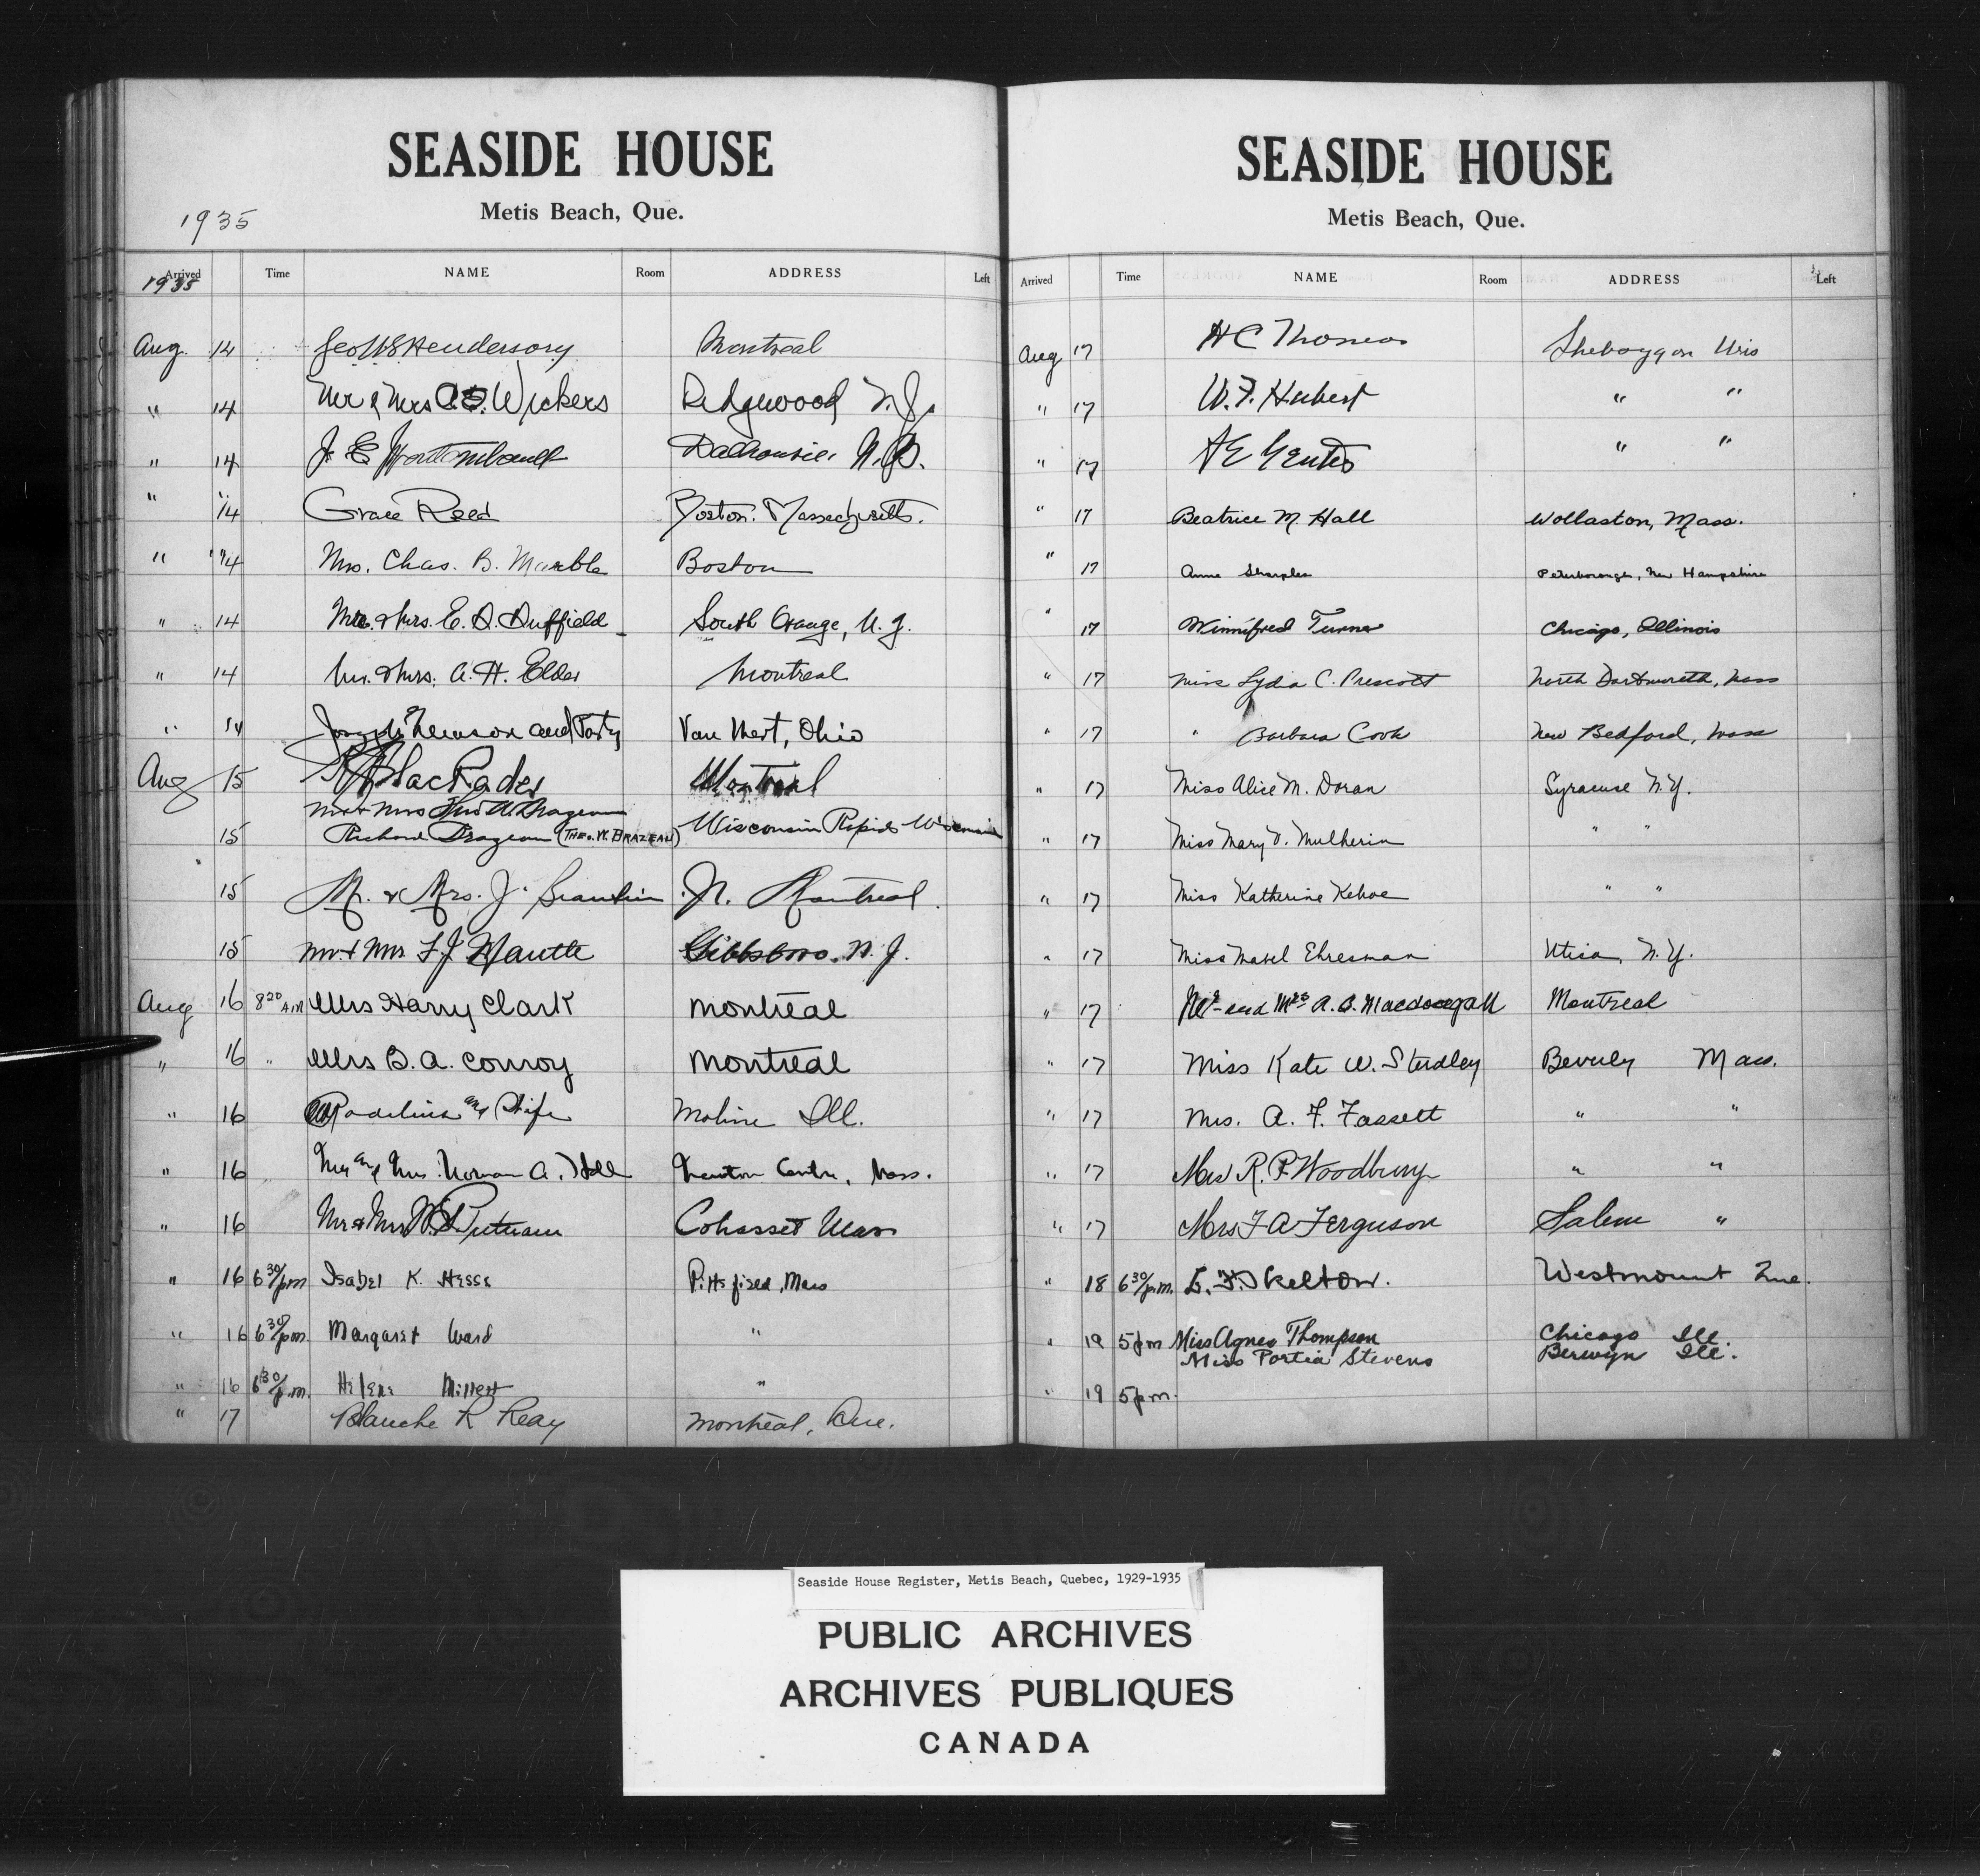 SEASIDE HOUSE
Metis Beach, Que.
1935
Arrived Time NAME Room ADDRESS Left
1935
Aug. 14 Geo W S Henderson Montreal
" 14 Mr & Mrs Wickers Ridgewood N.J.
" 14 J. E. Dalhousie, N.B.
" 14 Grace Reed Boston. Massachusetts.
" 14 Mrs. Chas. B. Marble Boston
" 14 Mr. & Mrs. E. D. Duffield South Orange, N.J.
" 14 Mr. & Mrs. A. H. Elder Montreal
" 14 and Party Van Wert, Ohio
Aug 15 Montreal
Mr & Mrs Theo W. Brazeau
15 Richard Brazeau (THEO. W. BRAZEAU) Wisconsin Rapids Wisconsin
15 Mr. & Mrs. J. N. Montreal.
15 Mr & Mrs F. J. Wautle Gibbsboro. N.J.
Aug 16 8 20 AM Mrs Harry Clark Montreal
" 16 " Mrs B. A. Conroy Montreal
" 16 and Wife Moline Ill.
" 16 Mr and Mrs. Norman A. Hall Newton Centre, Mass.
" 16 Mr & Mrs W. S. Putnam Cohasset Mass
" 16 6 30/pm Isabel K. Hesse Pittsfield, Mass
" 16 6 30/pm. Margaret Ward "
" 16 6 30/p.m. Helene Millett "
" 17 Blanche R Reay Montreal, Que.
SEASIDE HOUSE
Metis Beach, Que.
Arrived Time NAME Room ADDRESS Left
Aug 17 H C Thomas Sheboygan Wis
" 17 W. F. Hubert " "
" 17 A E " "
" 17 Beatrice M. Hall Wollaston, Mass.
" 17 Anne Sharples Peterborough, New Hampshire
" 17 Winnifred Turner Chicago, Illinois
" 17 Miss Lydia C. Prescott North Dartmouth, Mass
" 17 " Barbara Cook New Bedford, Mass
" 17 Miss Alice M. Doran Syracuse N.Y.
" 17 Miss Mary D. Mulherin " "
" 17 Miss Katherine Kehoe " "
" 17 Miss Mabel Ehresman Utica, N.Y.
" 17 Mr and Mrs A. B. Macdougall Montreal
" 17 Miss Kate W. Studley Beverly Mass.
" 17 Mrs. A. F. Fassett " "
" 17 Mrs R. P. Woodbury " "
" 17 Mrs F A Ferguson Salem "
" 18 6 30/p.m. E. F. Skelton. Westmount Que.
" 19 5 pm Miss Agnes Thompson Chicago Ill.
Miss Portia Stevens Berwyn Ill.
" 19 5 pm.
Seaside House Register, Metis Beach, Quebec, 1929-1935
PUBLIC ARCHIVES
ARCHIVES PUBLIQUES
CANADA